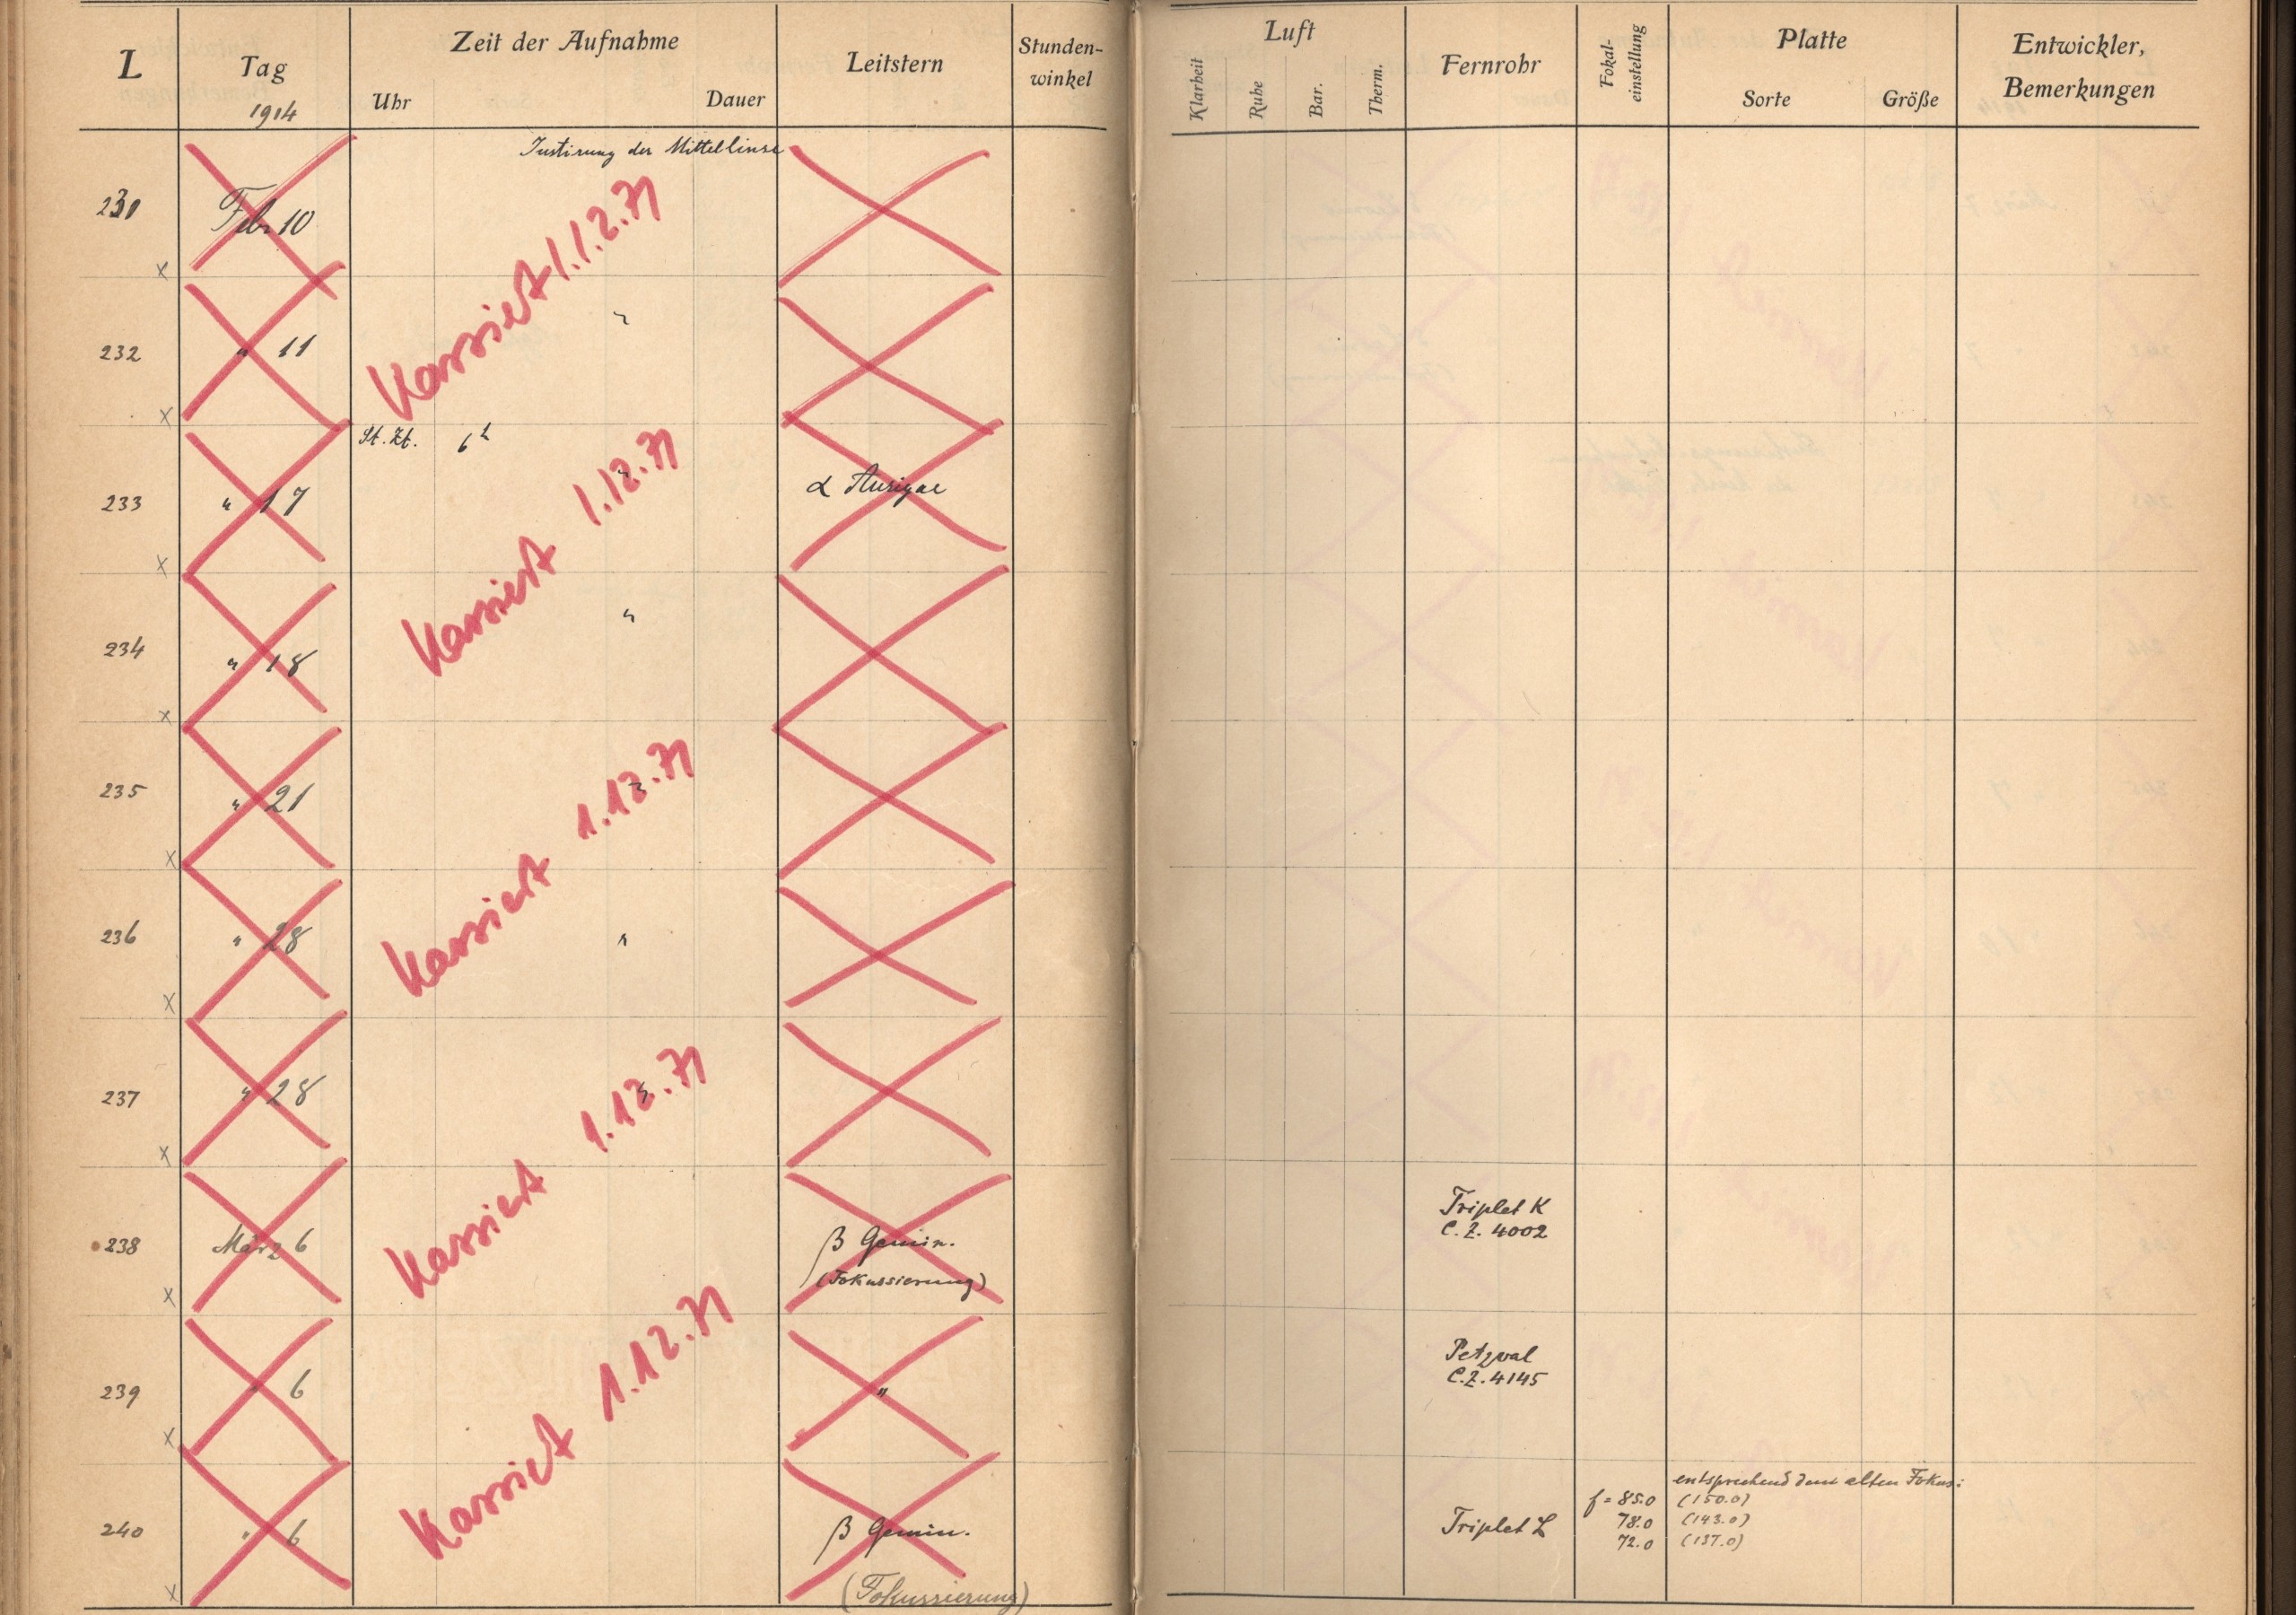 L
Tag
1914
Zeit der Aufnahme
Uhr
Dauer
Leitstern
Stunden-
winkel
Luft
Klarheit
Ruhe
Bar.
Therm.
Fernrohr
Fokal-
einstellung
Platte
Sorte
Größe
Entwickler,
Bemerkungen
Justirung der Mittellinse
Febr 10
Kassiert 1.12.71
232
" 11
"
St. Zt. 6h
233
" 17
"
α Aurigae
Kassiert 1.12.71
234
" 18
"
235
" 21
"
Kassiert 1.12.71
236
" 28
"
237
" 28
"
Kassiert 1.12.71
238
März 6
β Gemin.
(Fokussierung)
Triplet K
C. Z. 4002
239
" 6
"
Petzval
C. Z. 4145
Kassiert 1.12.71
240
" 6
β Gemin.
(Fokussierung)
Triplet L
entsprechend dem alten Fokus:
f = 85.0 (150.0)
78.0 (143.0)
72.0 (137.0)